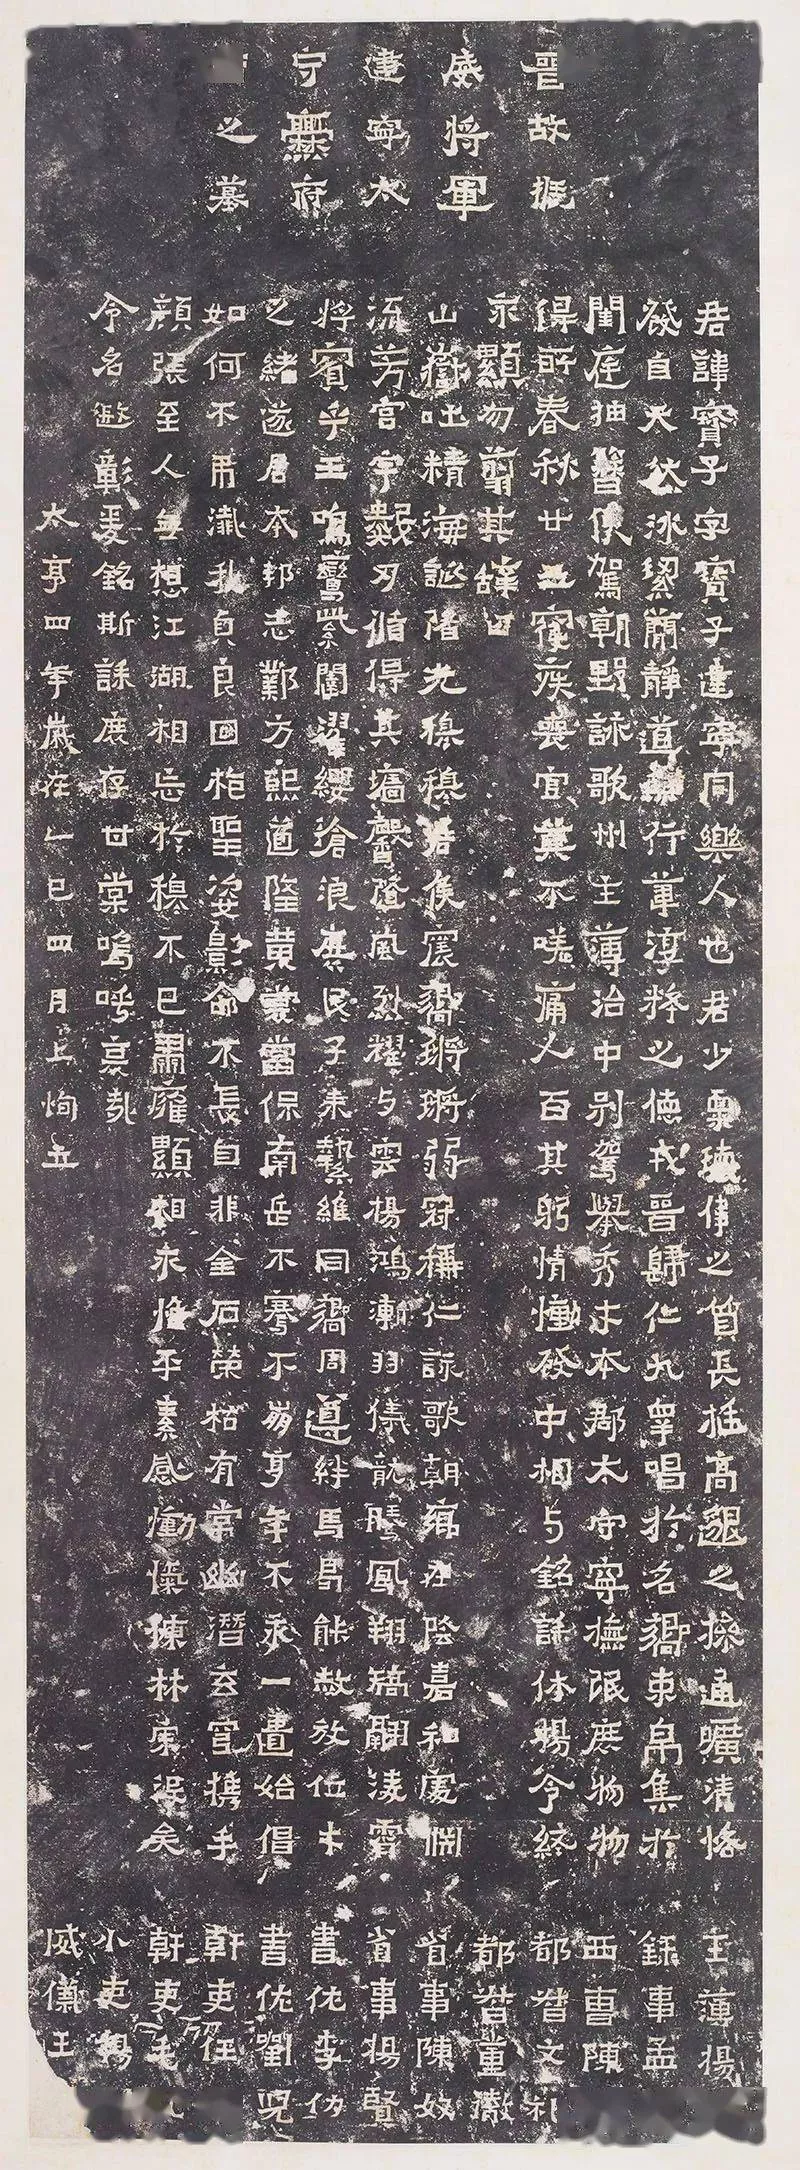 晉故振
威將軍
建寧太
守爨府
之墓
君諱寶子字寶子建寧同樂人也君少稟瓌偉之質長挺高邈之操通曠清恪
發自天然冰絜簡靜道兼行葦淳粹之德戎晉歸仁九皋唱於名嚮束帛集於
閨庭抽簪俟駕朝野詠歌州主薄治中別駕舉秀才本郡太守寧撫氓庶物物
得所春秋廿五寢疾喪官莫不嗟痛人百其躬情慟發中相与銘誄休揚令終
永顯勿翦其辭曰
山嶽吐精海誕陼光穆穆君侯震嚮鏘鏘弱冠稱仁詠歌朝鄉在陰嘉和處淵
流芳宮宇數刃循得其墻馨隨風烈耀与雲揚鴻漸羽儀龍騰鳳翔矯翮淩霄
將賓乎王鳴鸞紫闥濯纓滄浪庶民子來縶維同嚮周遵絆馬曷能赦放位才
之緒遂居本邦志鄴方熙道隆黃裳當保南岳不騫不崩享年不永一匱始倡
如何不弔殲我貞良回抱聖姿影命不長自非金石榮枯有常幽潛玄穹攜手
顏張至人無想江湖相忘於穆不已肅雍顯相永惟平素感慟忾慷林宗沒矣
令名遐彰爰銘斯誄庶存甘棠嗚呼哀哉
太亨四年歲在乙巳四月上恂立
主薄楊
錄事孟
西曹陳
都督文礼
都督董徹
省事陳奴
省事楊賢
書佐李仂
書佐劉兒
幹吏任
幹吏毛礼
小吏楊
威儀王